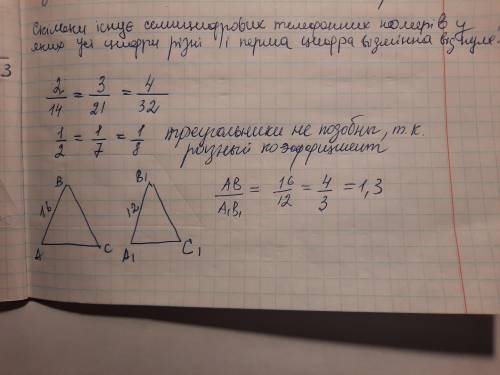 Скільки існує семицифрових телефонних номерів у
яких усі цифри різні і перша цифра відмінна від нуля.
3
2/14 = 3/21 = 4/32
1/2 = 1/7 = 1/8 треугольники не позобны, т.к.
разный коэффициент
B B1
16 12 AB/A1B1 = 16/12 = 4/3 = 1,3
A C A1 C1